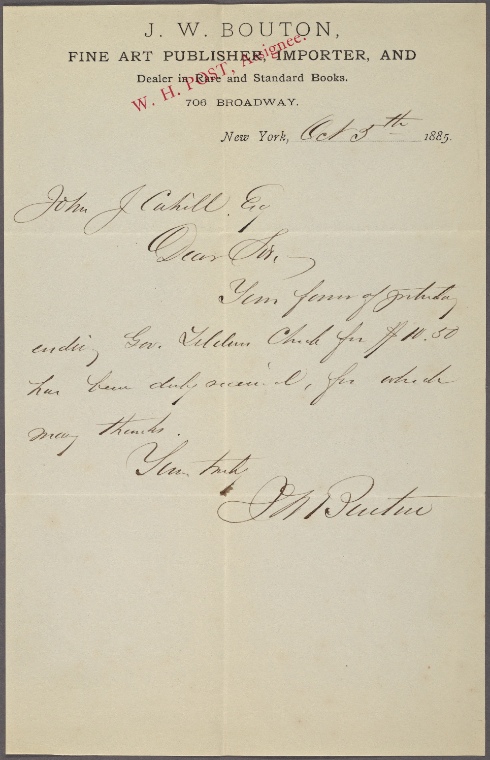 J. W. BOUTON,
FINE ART PUBLISHER, IMPORTER, AND
Dealer in Rare and Standard Books.
W. H. POST, Assignee.
706 BROADWAY.
New York, Oct 5th 1885.
John J Cahill Esq
Dear Sir,
Your favor of yesterday
Gov. Tilden Check for $10.50
has been duly received, for which
many thanks.
Yours truly
J W Bouton